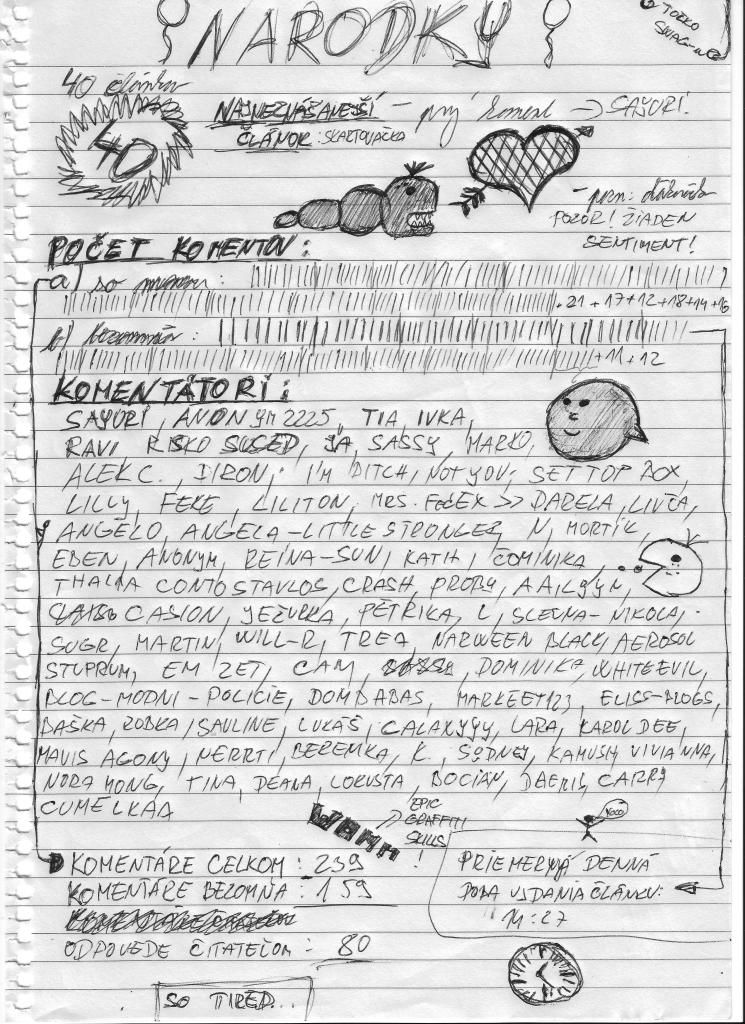 NARODKY
TOTKO
SWAG-
40 článkov
40
NAJNEZNÁŠANEJŠÍ – prvý koment → SAYURI.
ČLÁNOK: SKARTOVAČKA
POZOR! ŽIADEN
SENTIMENT!
POČET KOMENTOV:
a) so mnou:
+21+17+12+18+14+16
b) bezomňa:
+11+12
KOMENTÁTORI:
SAYURI, ANONYM 2225, TIA, IVKA,
RAVI RISKO SUSED, JA, SASSY, MARKO,
ALEK C., DIRON, I'M BITCH, NOT YOU, SET TOP BOX,
LILLY, FEKE, LILITON, MRS. FEDEX >> DARELA, LIVČA,
ANGELO, ANGELA-LITTLE STRONGER, N, MORTIK,
EBEN, ANONYM, REINA-SUN, KATH, ČOMINIKA,
THALIA CONTOSTAVLOS, CRASH, PROBY, A.A, LYYN,
CASION, JEŽURKA, PETRIKA, L, SLEVNA-NIKOLA,
SUGR, MARTIN, WILL-R, TREA, NARWEEN BLACK, AEROSOL
STUPRUM, EM ZET, CAM, DOMINIKA, WHITEEVIL,
BLOG-MODNI-POLICIE, DOMDABAS, MARKEET123, ELISS-BLOGS,
BAŠKA, ROBKA, SAULINE, LUKÁŠ, GALAXYYY, LARA, KAROL DEE,
MAVIS AGONY, MERRTI, BEREMKA, K., SYDNEY, KAMUSH, VIVIANNA,
NORA MONG, TINA, DEANA, LOKUSTA, BOCIAN, DAERIS, CARRY
CUMELKAA
WAMM
EPIC
GRAFFITI
SKILLS!
YOLO
KOMENTÁRE CELKOM: 239
KOMENTÁRE BEZOMŇA: 159
ODPOVEDE ČITATEĽOM: 80
PRIEMERNÁ DENNÁ
DOBA VYDANIA ČLÁNKU:
14:27
SO TIRED...